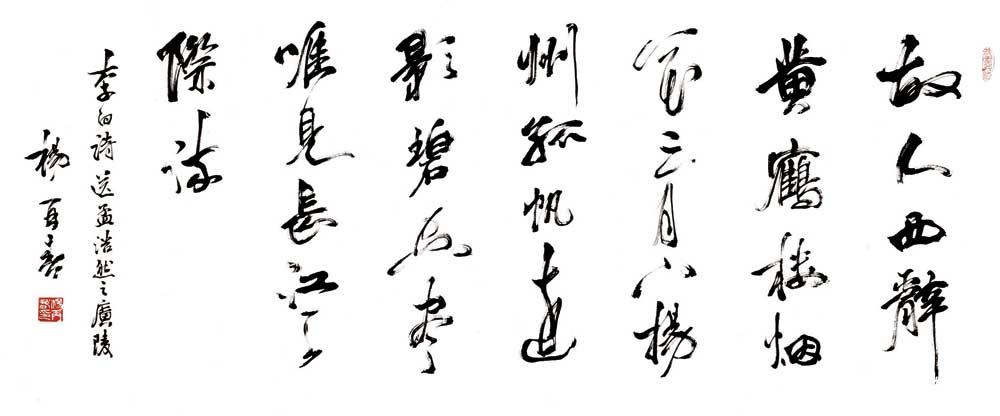 故人西辭
黄鶴楼烟
花三月下揚
州孤帆遠
影碧空尽
唯見長江天
際流
李白詩送孟浩然之廣陵
楊再春